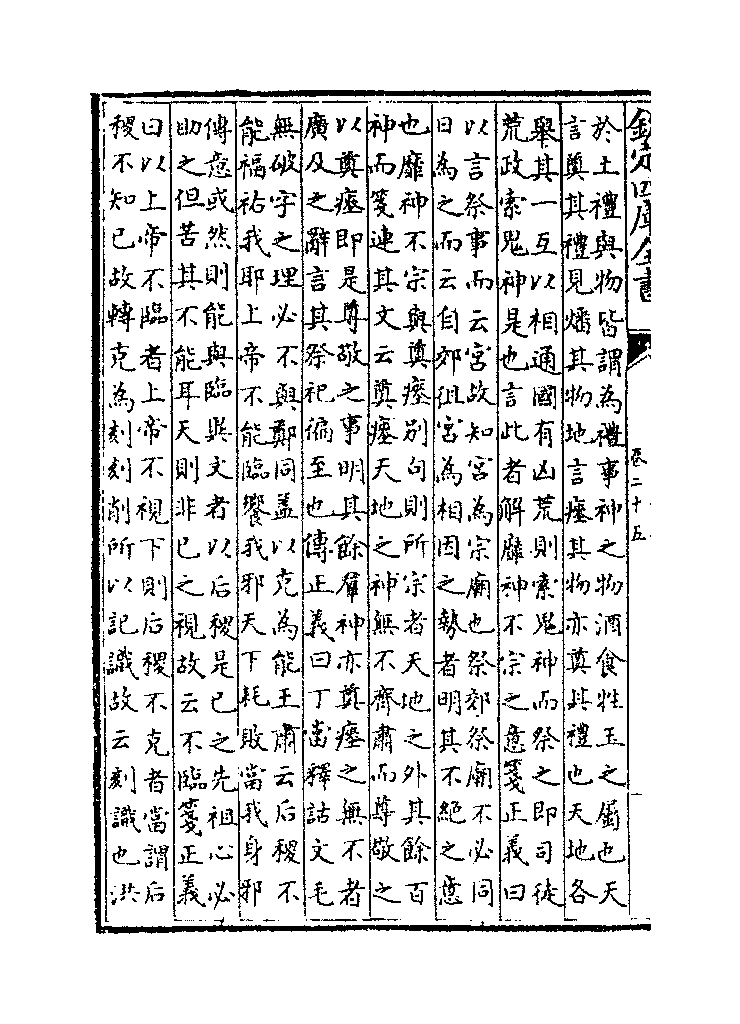 欽定四庫全書
卷二十五
於土禮與物皆謂為禮事神之物酒食牲玉之屬也天
言奠其禮見燔其物地言瘞其物亦奠其禮也天地各
舉其一互以相通國有凶荒則索鬼神而祭之即司徒
荒政索鬼神是也言此者解靡神不宗之意箋正義曰
以言祭事而云宮故知宮為宗廟也祭郊祭廟不必同
日為之而云自郊徂宮為相因之勢者明其不絕之意
也靡神不宗與奠瘞别句則所宗者天地之外其餘百
神而箋連其文云奠瘞天地之神無不齊肅而尊敬之
以奠瘞即是尊敬之事明其餘羣神亦奠瘞之無不者
廣及之辭言其祭祀徧至也傳正義曰丁當釋詁文毛
無破字之理必不與鄭同蓋以克為能王肅云后稷不
能福祐我耶上帝不能臨饗我邪天下耗敗當我身邪
傳意或然則能與臨異文者以后稷是已之先祖心必
助之但苦其不能耳天則非已之視故云不臨箋正義
曰以上帝不臨者上帝不視下則后稷不克者當謂后
稷不知已故轉克為刻刻削所以記識故云刻識也洪